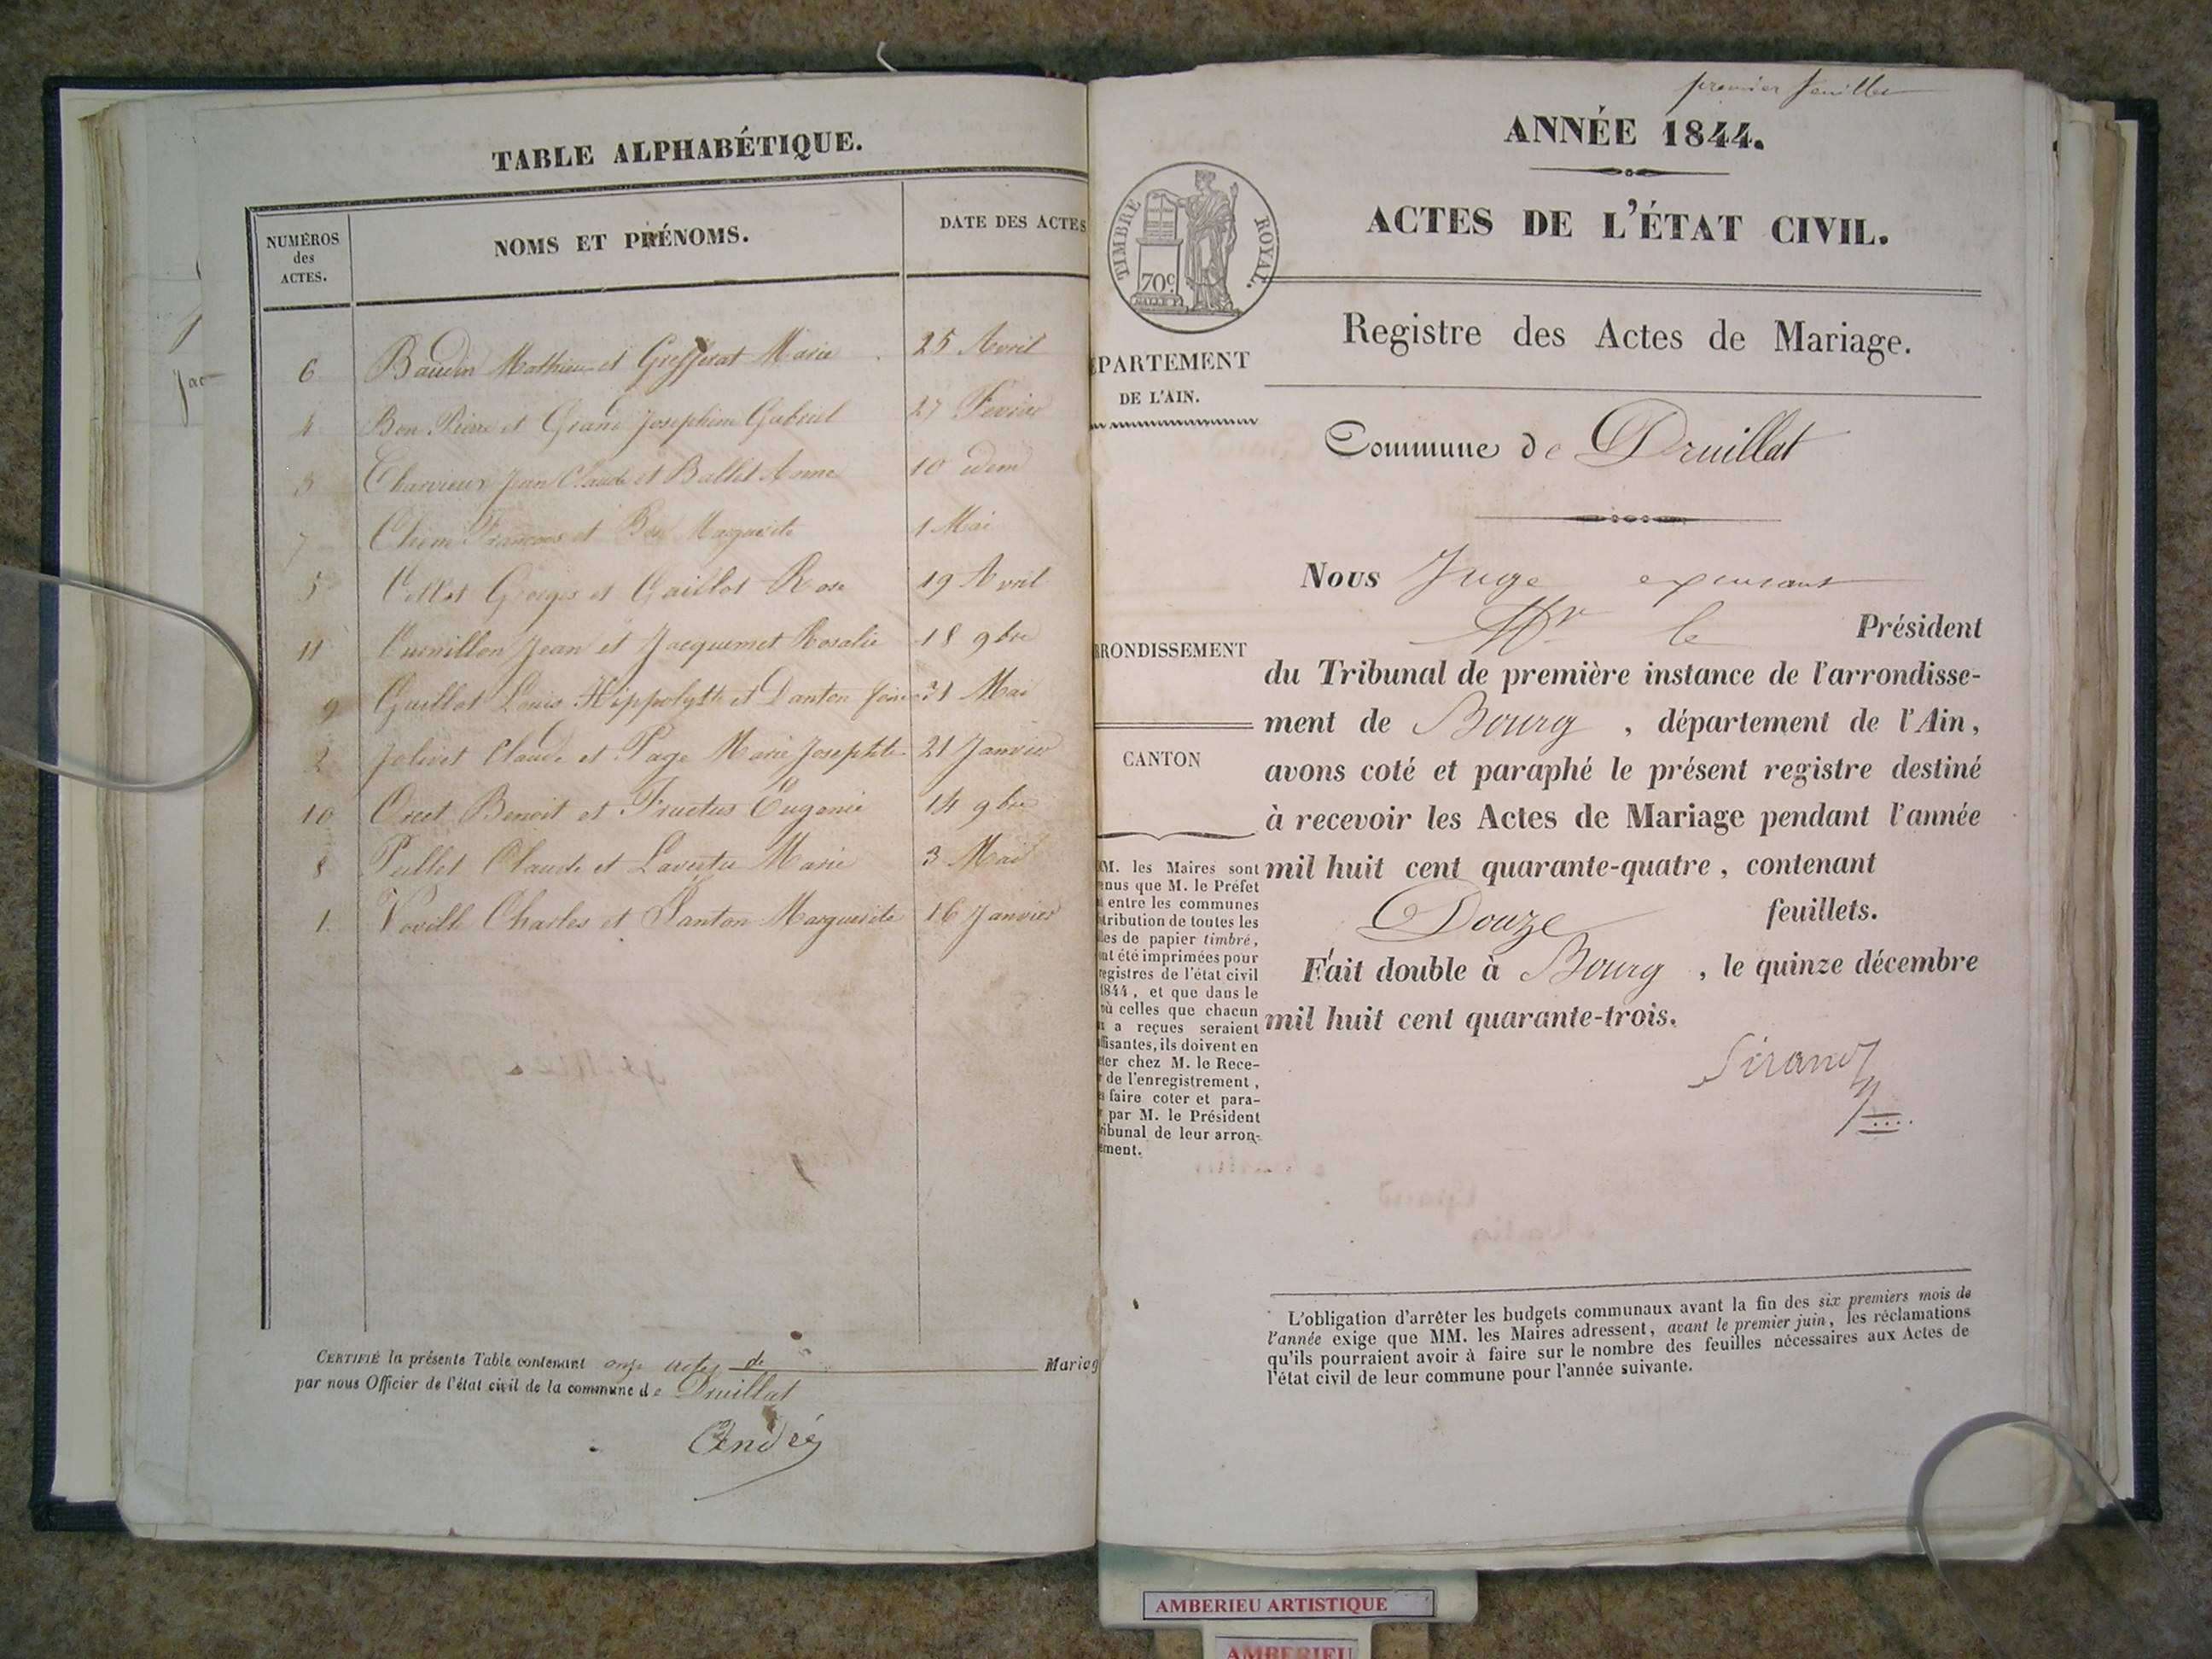 TABLE ALPHABÉTIQUE.
NUMÉROS des ACTES.
NOMS ET PRÉNOMS.
DATE DES ACTES
6 Baudin Mathieu et Grefferat Marie 25 Avril
4 Bon Pierre et Grand Josephine Gabriel 27 Fevrier
3 Charvieux Jean Claude et Ballet Anne 10 idem
7 François et Marguerite 1 Mai
5 Collet Georges et Gaillot Rose 19 Avril
11 Cuenillon Jean et Jacquemet Rosalie 18 9bre
9 Guillot Louis Hippolyte et Danton 31 Mai
2 Jolivet Claude et Page Marie Josephte 21 Janvier
10 Orcet Benoit et Fructus Eugenie 14 9bre
8 Pullet Claude et Marie 3 Mai
1. Voville Charles et Danton Marguerite 16 Janvier
CERTIFIÉ la présente Table contenant onze actes de Mariag
par nous Officier de l'état civil de la commune de Druillat
André
premier feuillet
ANNÉE 1844.
ACTES DE L'ÉTAT CIVIL.
TIMBRE ROYAL.
70c
Registre des Actes de Mariage.
ÉPARTEMENT
DE L'AIN.
Commune de Druillat
Nous Juge
Mr le Président
RRONDISSEMENT
du Tribunal de première instance de l'arrondisse-
ment de Bourg , département de l'Ain,
CANTON
avons coté et paraphé le présent registre destiné
à recevoir les Actes de Mariage pendant l'année
mil huit cent quarante-quatre, contenant
Douze feuillets.
Fait double à Bourg , le quinze décembre
mil huit cent quarante-trois.
Sirand
MM. les Maires sont
enus que M. le Préfet
entre les communes
tribution de toutes les
les de papier timbré,
nt été imprimées pour
registres de l'état civil
1844, et que dans le
où celles que chacun
a reçues seraient
ffisantes, ils doivent en
ter chez M. le Rece-
de l'enregistrement,
faire coter et para-
par M. le Président
ribunal de leur arron-
ement.
L'obligation d'arrêter les budgets communaux avant la fin des six premiers mois de
l'année exige que MM. les Maires adressent, avant le premier juin, les réclamations
qu'ils pourraient avoir à faire sur le nombre des feuilles nécessaires aux Actes de
l'état civil de leur commune pour l'année suivante.
AMBERIEU ARTISTIQUE
AMBERIEU